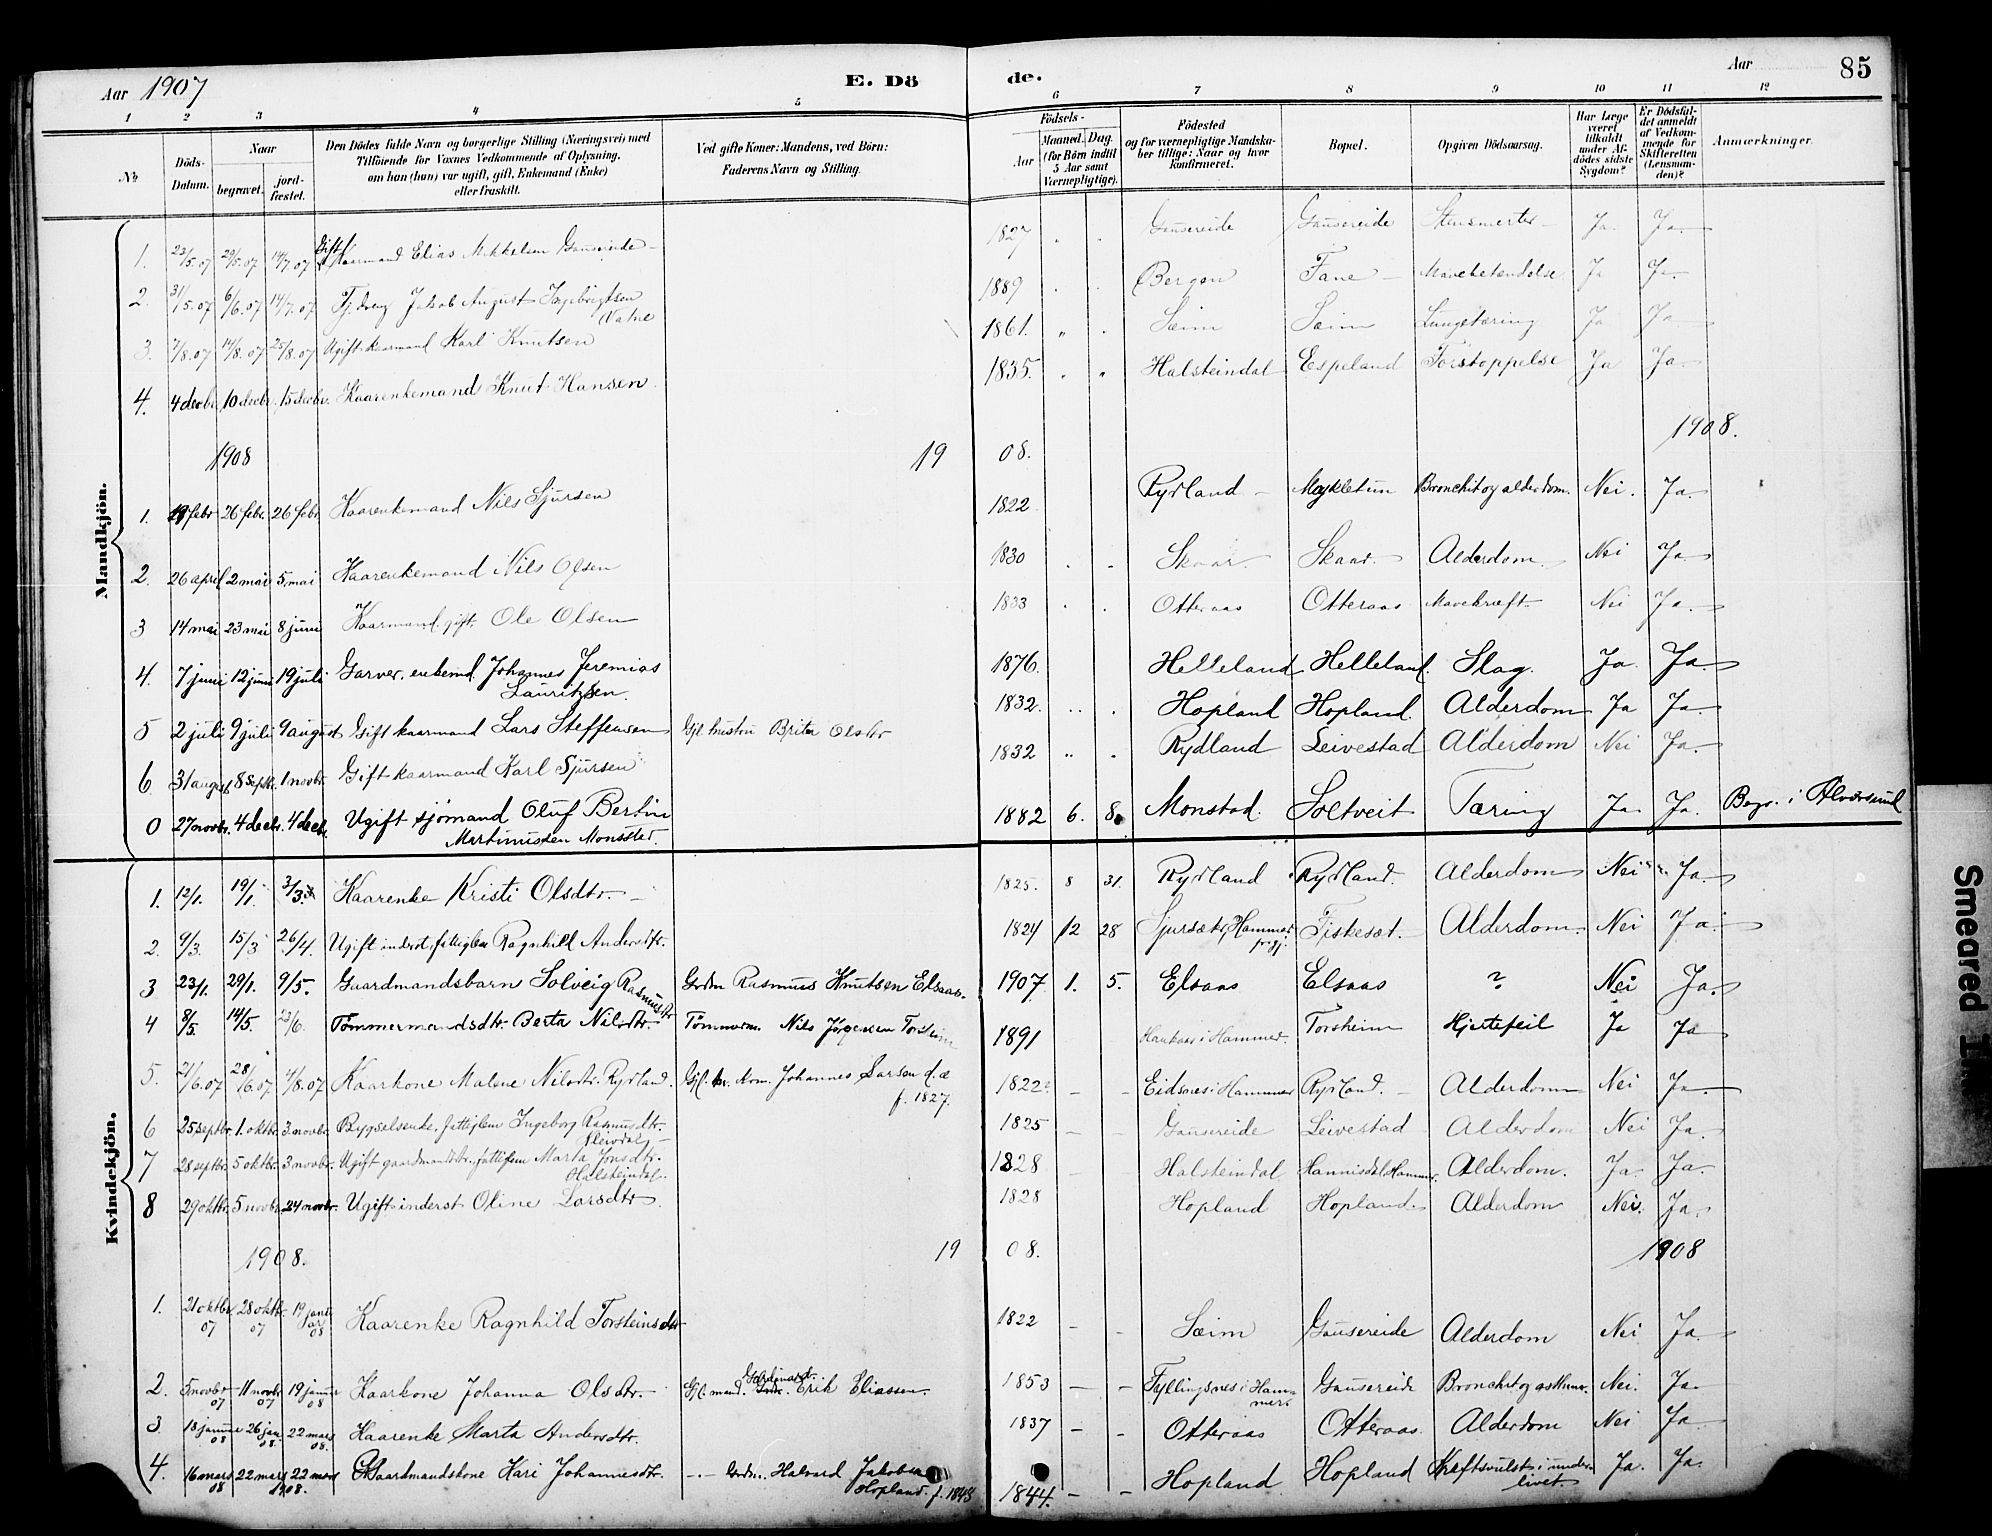 Aar 1907 E. Dö de. Aar 85
1 2 3 4 5 6 7 8 9 10 11 12
№ Döds-Datum. Naar begravet. jord-fæstet. Den Dödes fulde Navn og borgerlige Stilling (Næringsvei) med Tilföiende for Voxnes Vedkommende af Oplysning, om han (hun) var ugift, gift, Enkemand (Enke) eller fraskilt. Ved gifte Koner: Mandens, ved Börn: Faderens Navn og Stilling. Födsels- Aar Maaned. Dag. (for Börn indtil 5 Aar samt Værnepligtige). Födested og for værnepligtige Mandskaber tillige: Naar og hvor konfirmeret. Bopæl. Opgiven Dödsaarsag. Har Læge været tilkaldt under Afdödes sidste Sygdom? Er Dödsfaldet anmeldt af Vedkommende for Skifteretten (Lensmanden)? Anmærkninger.
Mandkjön.
1. 23/5.07 29/5.07 14/7.07 Gift Kaarmand Elias Mikkelsen Gausereide 1827 Gausereide Gausereide Stensmerter Ja Ja
2. 31/5.07 6/6.07 14/7.07 Tj.dreng Jakob August Ingebrigtsen 1889 Bergen Fane Mavebetendelse Ja Ja
3. 7/8.07 14/8.07 25/8.07 Ugift kaarmand Karl Knutsen 1861. Sæim Sæim Lungetæring Ja Ja
4. 4 decbr. 10 decbr. 15 decbr. Kaarenkemand Knut Hansen 1835. Halsteindal Espeland Forstoppelse Ja Ja
1908 19 08. 1908.
1. 19 febr 26 febr. 26 febr. Kaarenkemand Nils Sjursen 1822 Rydland Mykletun Bronchit og alderdom. Nei. Ja
2. 26 april 2 mai 5 mai Kaarenkemand Nils Olsen 1830 Skaar Skaar Alderdom Nei Ja
3 14 mai 23 mai 8 juni Kaarmand. gift. Ole Olsen 1833 Otteraas Otteraas Mavekræft. Nei Ja
4. 7 juni 12 juni 19 juli Garver, enkemd. Johannes Jeremias 1876. Helleland Helleland. Slag. Ja Ja
Lauritzsen.
5 2 juli 9 juli 9 august Gift kaarmand Lars Steffensen Gjl. hustru Brita Olsdtr 1832. Hopland Hopland. Alderdom Ja Ja.
6. 31 august 8 septr. 1 novbr. Gift kaarmand Karl Sjursen 1832 Rydland Leivestad Alderdom Nei Ja
0 27 novbr. 4 decbr. 4 decbr. Ugift sjömand Oluf Bertin 1882 6. 8. Monstad. Soltveit Tæring Ja. Ja. Begr. i Alversund
Martinussen Monstad.
Kvindekjön.
1. 12/1. 19/1. 3/3. Kaarenke Kristi Olsdtr. 1825. 8 31. Rydland Rydland. Alderdom Nei Ja
2. 9/3. 15/3 26/4. Ugift inderst, fattiglem Ragnhild Andersdtr. 1824 12 28 Sjursæter, Hammer prgj. Fiskesæt. Alderdom. Nei Ja
3 23/1. 29/1. 9/5. Gaardmandsbarn Solveig Rasmusdtr Grdm Rasmus Knutsen Elsaas. 1907 1. 5. Elsaas Elsaas ? Nei Ja.
4 8/5. 14/5. 23/6. Tømmermandsdtr. Berta Nilsdtr. Tømmerm. Nils Jørgensen Torsheim 1891 Haukaas i Hammer. Torsheim Hjertefeil Ja Ja
5. 21/6.07 28/6.07. 4/8.07 Kaarkone Malene Nilsdtr. Rydland. Johannes Larsen d. æ f. 1827. 1822 Eidsnes i Hammer Rydland. Alderdom Nei Ja
6 25 septbr. 1. oktbr. 3. novbr. Bygselsenke, fattiglem Ingeborg Rasmusdtr. 1825 Gausereide Leivestad Alderdom Nei Ja.
7 28 septbr. 5 oktbr. 3 novbr. Ugift gaardmandsdtr. fattiglem Marta Jonsdtr. 1828 Halsteindal Hannisdal Hammer. Alderdom. Ja. Ja.
Halsteindal.
8 29 oktbr. 5 novbr. 24 novbr. Ugift inderst Oline Larsdtr 1828 Hopland Hopland. Alderdom Nei. Ja.
1908. 19 08. 1908
1. 21 oktbr. 07 28 oktbr. 07 19 januar 08 Kaarenke Ragnhild Torsteinsdtr 1822 Sæim Gausereide Alderdom Nei Ja.
2. 5 novbr 07 11 novbr 07 19 januar 08 Kaarkone Johanna Olsdtr. Gjl. mand. Erik Eliassen. 1853 Fyllingsnes i Hammer Gausereide Bronchit og asthma. Nei. Ja.
3 18 januar 08 26 jan 08. 22 mars 08. Kaarenke Marta Andersdtr. 1837 Otteraas Otteraas. Alderdom Nei Ja.
4. 16 mars 08 22 mars 22 mars 1908. Gaardmandskone Kari Johannesdtr. Grdm. Halvard Jakobsen Hopland. f. 1843 1844. Hopland. Hopland Kræftsvulst i underlivet. Ja. Ja.
Smeared